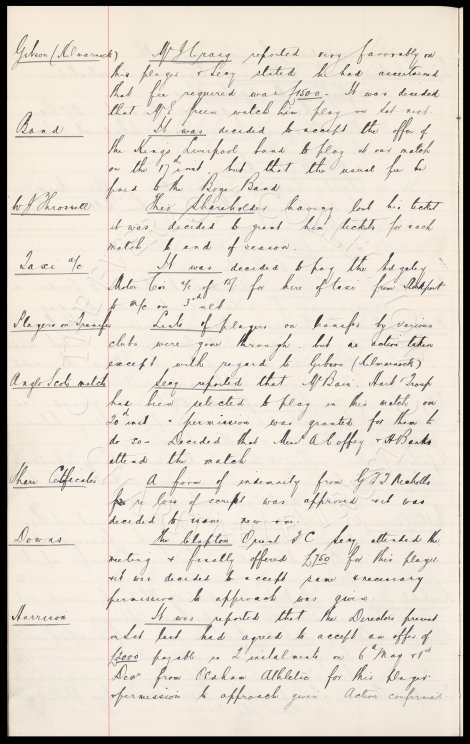 Gibson (Kilmarnock) Mr J Craig reported very favorably on
his player & Secy stated he had ascertained
that fee required was £1500. It was decided
that Mr E Green watch him play on Sat next
Band It was decided to accept the offer of
the Kings Liverpool band to play at our match
on the 17th inst. but that the usual fee be
paid to the Boys Band
W H Throssell This Shareholder having lost his ticket
it was decided to grant him tickets for each
match to end of season.
Taxi a/c It was decided to pay the
Motor Car a/c of for hire of taxi from Stockport
to M/c on 3rd ult
Players on Transfer Lists of players on transfer by various
clubs were gone through. but no action taken
except with regard to Gibson (Kilmarnock)
Anglo Scots match Secy reported that McBain. Hart Troup
has been selected to play in this match on
20th inst & permission was granted for them to
do so. Decided that Messrs A Coffey & A Banks
attend the match
Share Certificates A form of indemnity from G F J Nicholls
for re loss of script was approved & it was
decided to issue new one.
Downs The Clapton Orient F C Secy attended the
meeting & finally offered £750 for this player
& it was decided to accept same & necessary
permission to approach was given
Harrison It was reported that the Directors present
on Sat last had agreed to accept an offer of
£2000 payable in 2 instalments on 6th May & 1st
Decr from Oldham Athletic for this player
& permission to approach given. Action confirmed